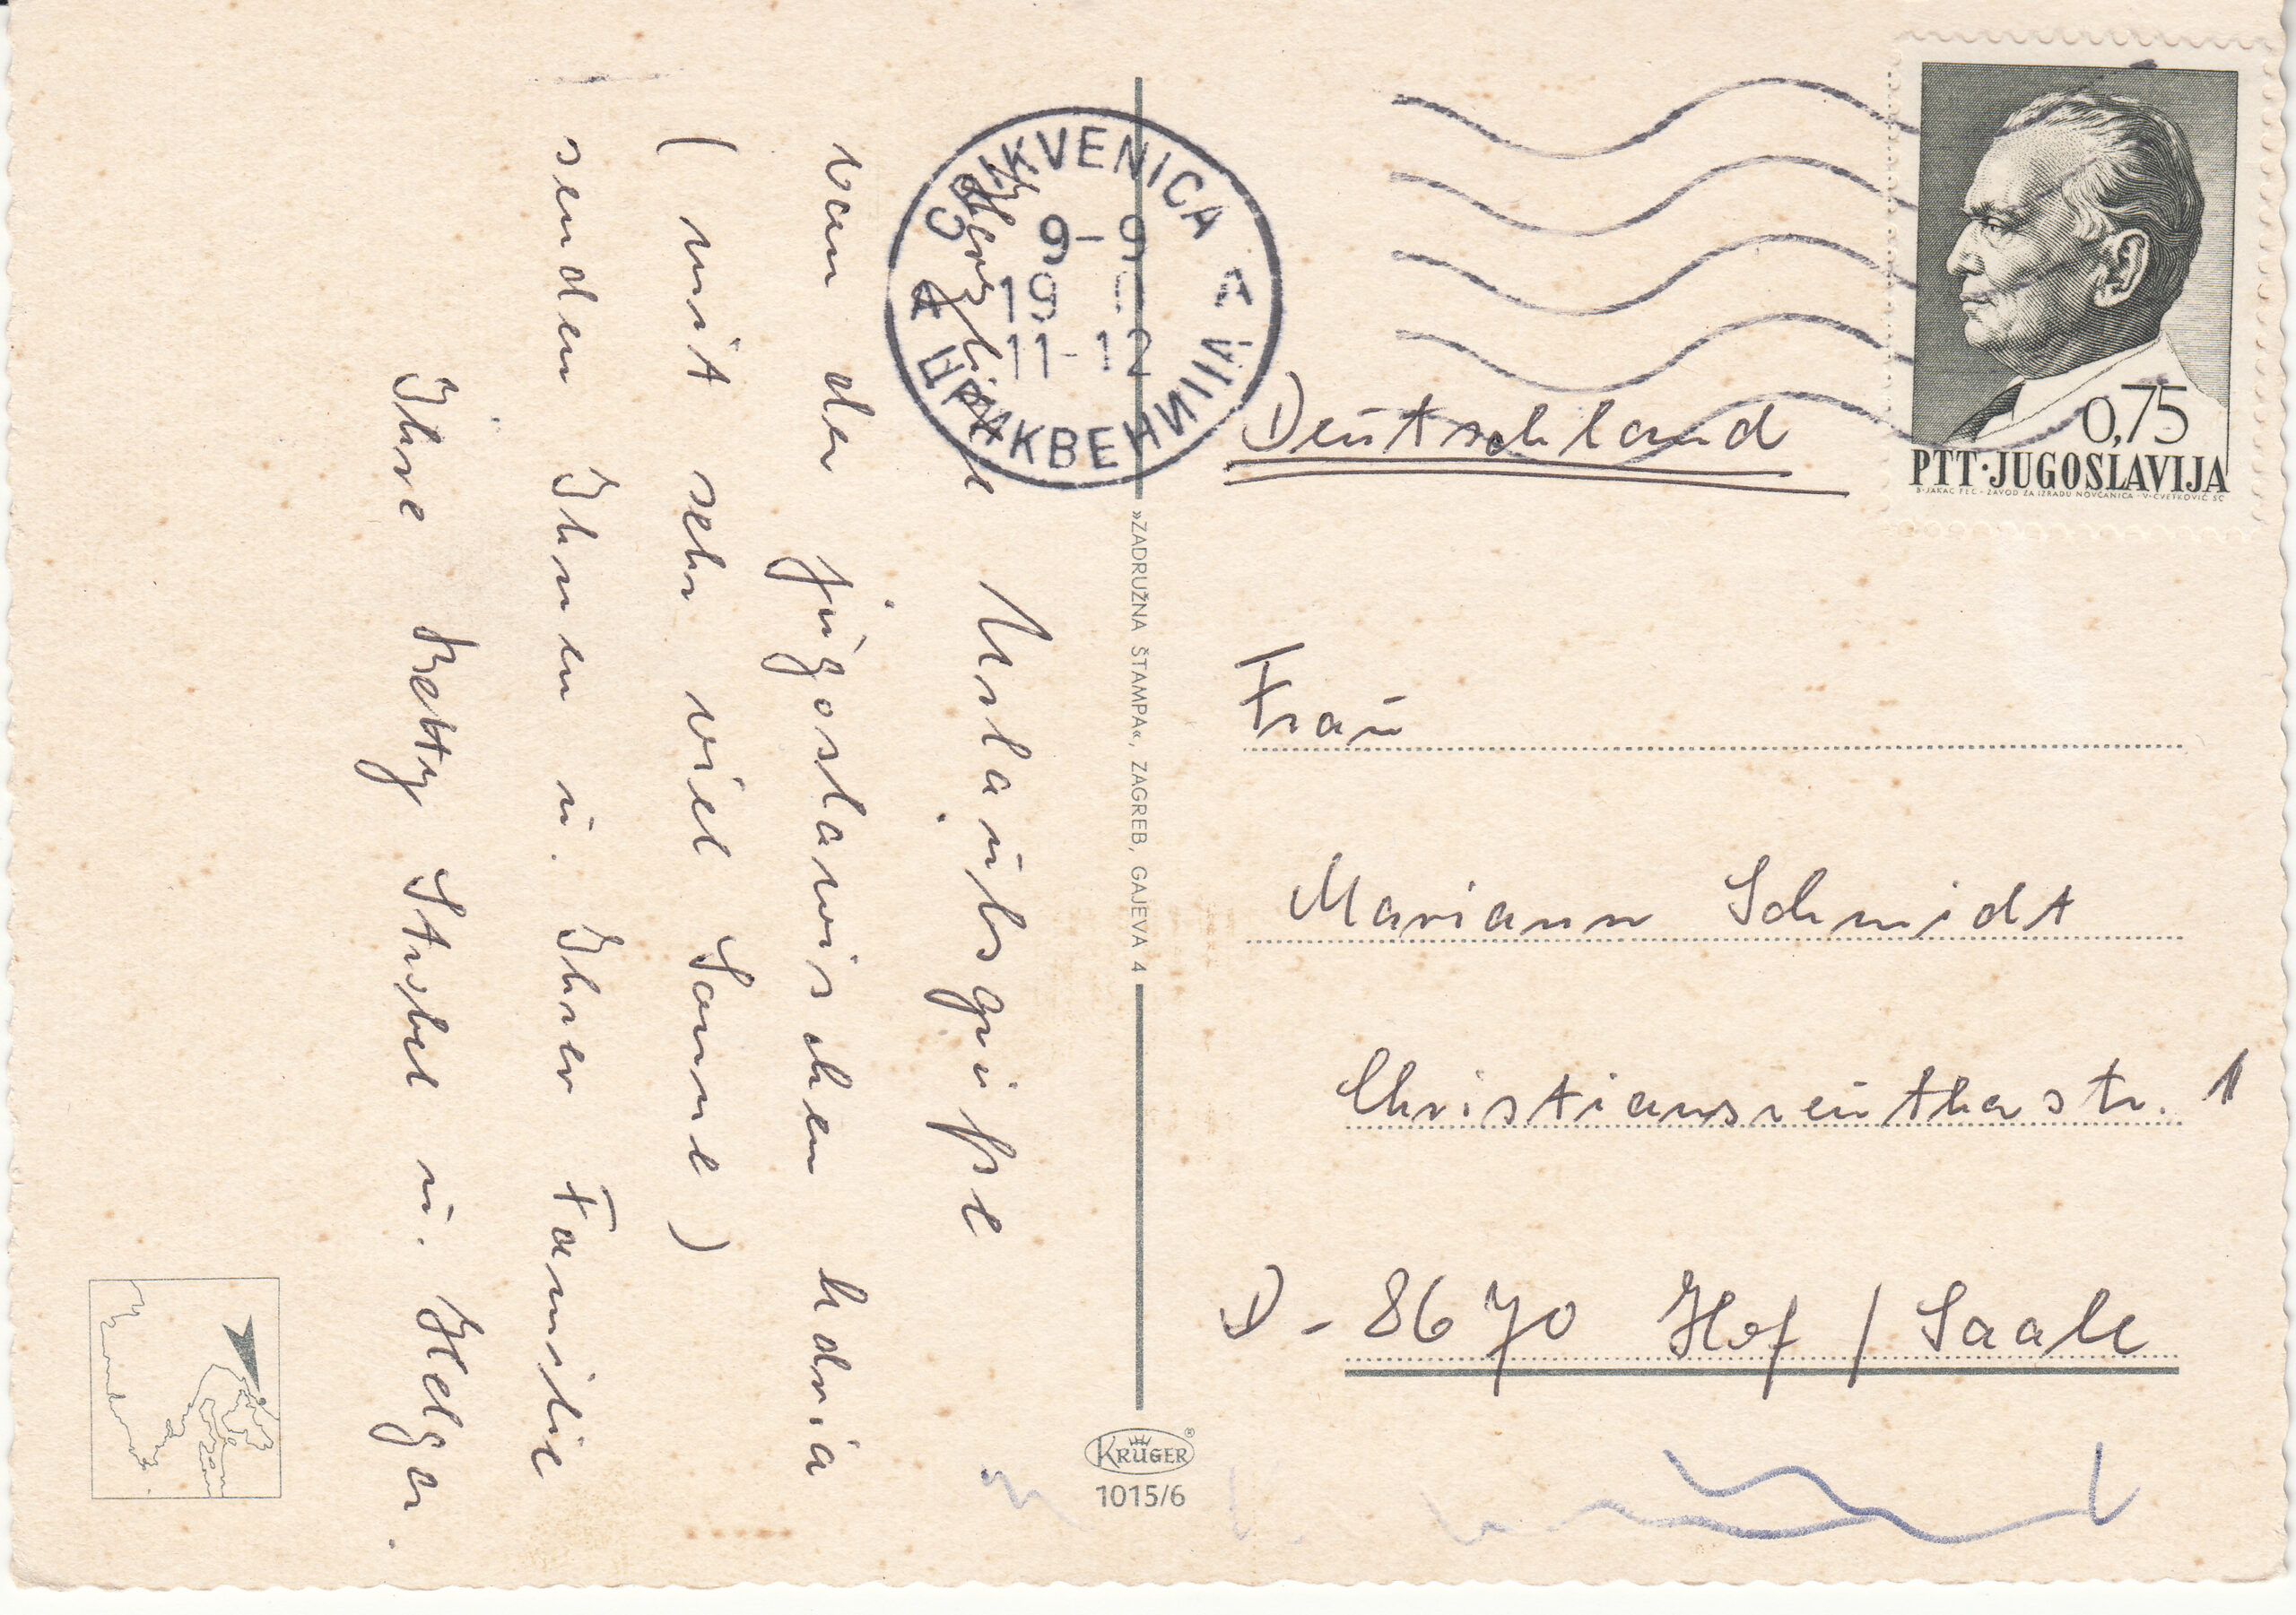 Herzliche Urlaubsgrüße
von der jugoslawischen Adria
( mit sehr viel Sonne )
senden Ihnen u. Ihrer Familie
Ihre Betty Strobel u. Helga.
CRIKVENICA
9-9
19
11-12
ЦРИКВЕНИЦА
0,75
PTT·JUGOSLAVIJA
B·JAKAC FEC·ZAVOD ZA IZRADU NOVČANICA·V·CVETKOVIĆ SC
Deutschland
Frau
Mariann Schmidt
Christiansreutherstr. 1
D - 8670 Hof / Saale
»ZADRUŽNA ŠTAMPA«, ZAGREB, GAJEVA 4
KRÜGER®
1015/6